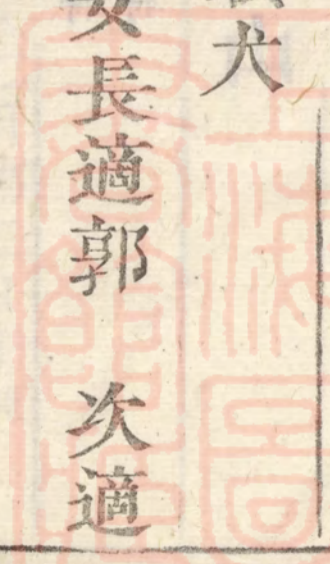 犬
女長適郭　次適